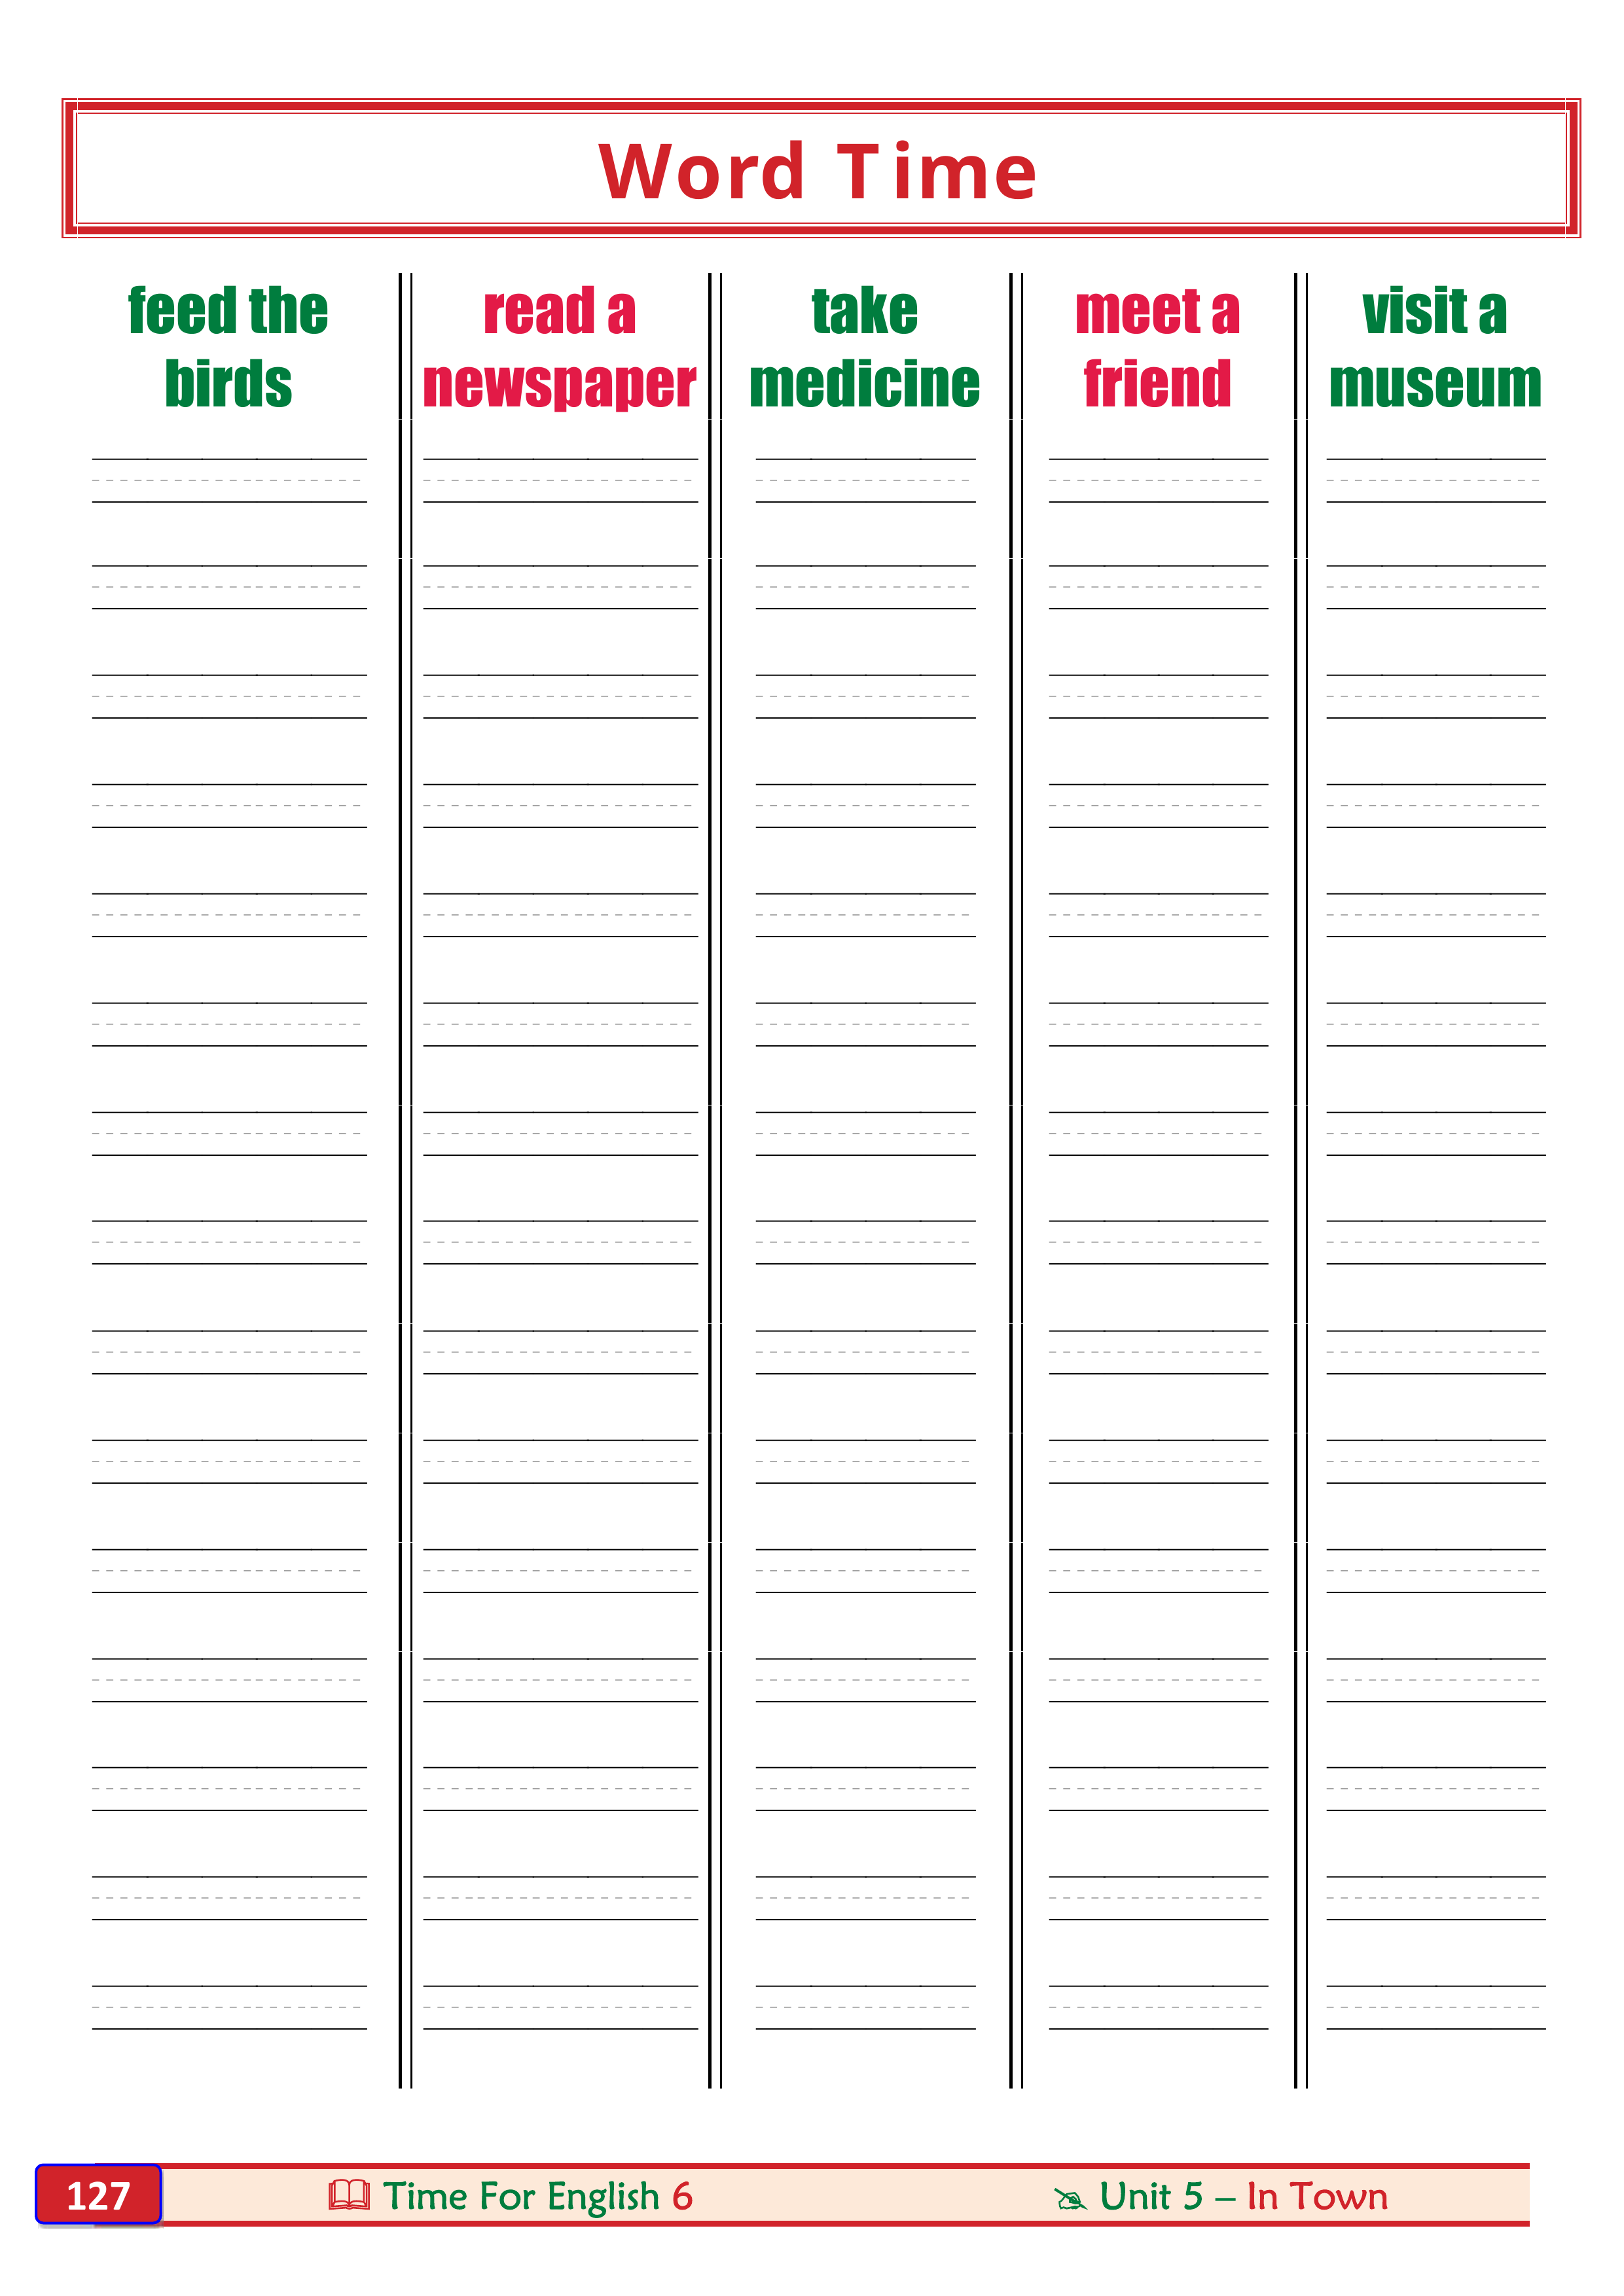 Word Time
feed the
birds
read a
newspaper
take
medicine
meet a
friend
visit a
museum
127
Time For English 6
Unit 5 – In Town